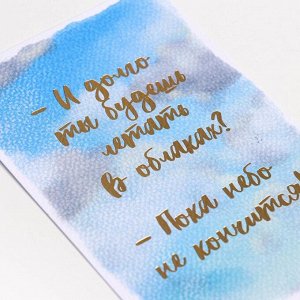 – И долго
ты будешь
летать
в облаках?
– Пока небо
не кончится!